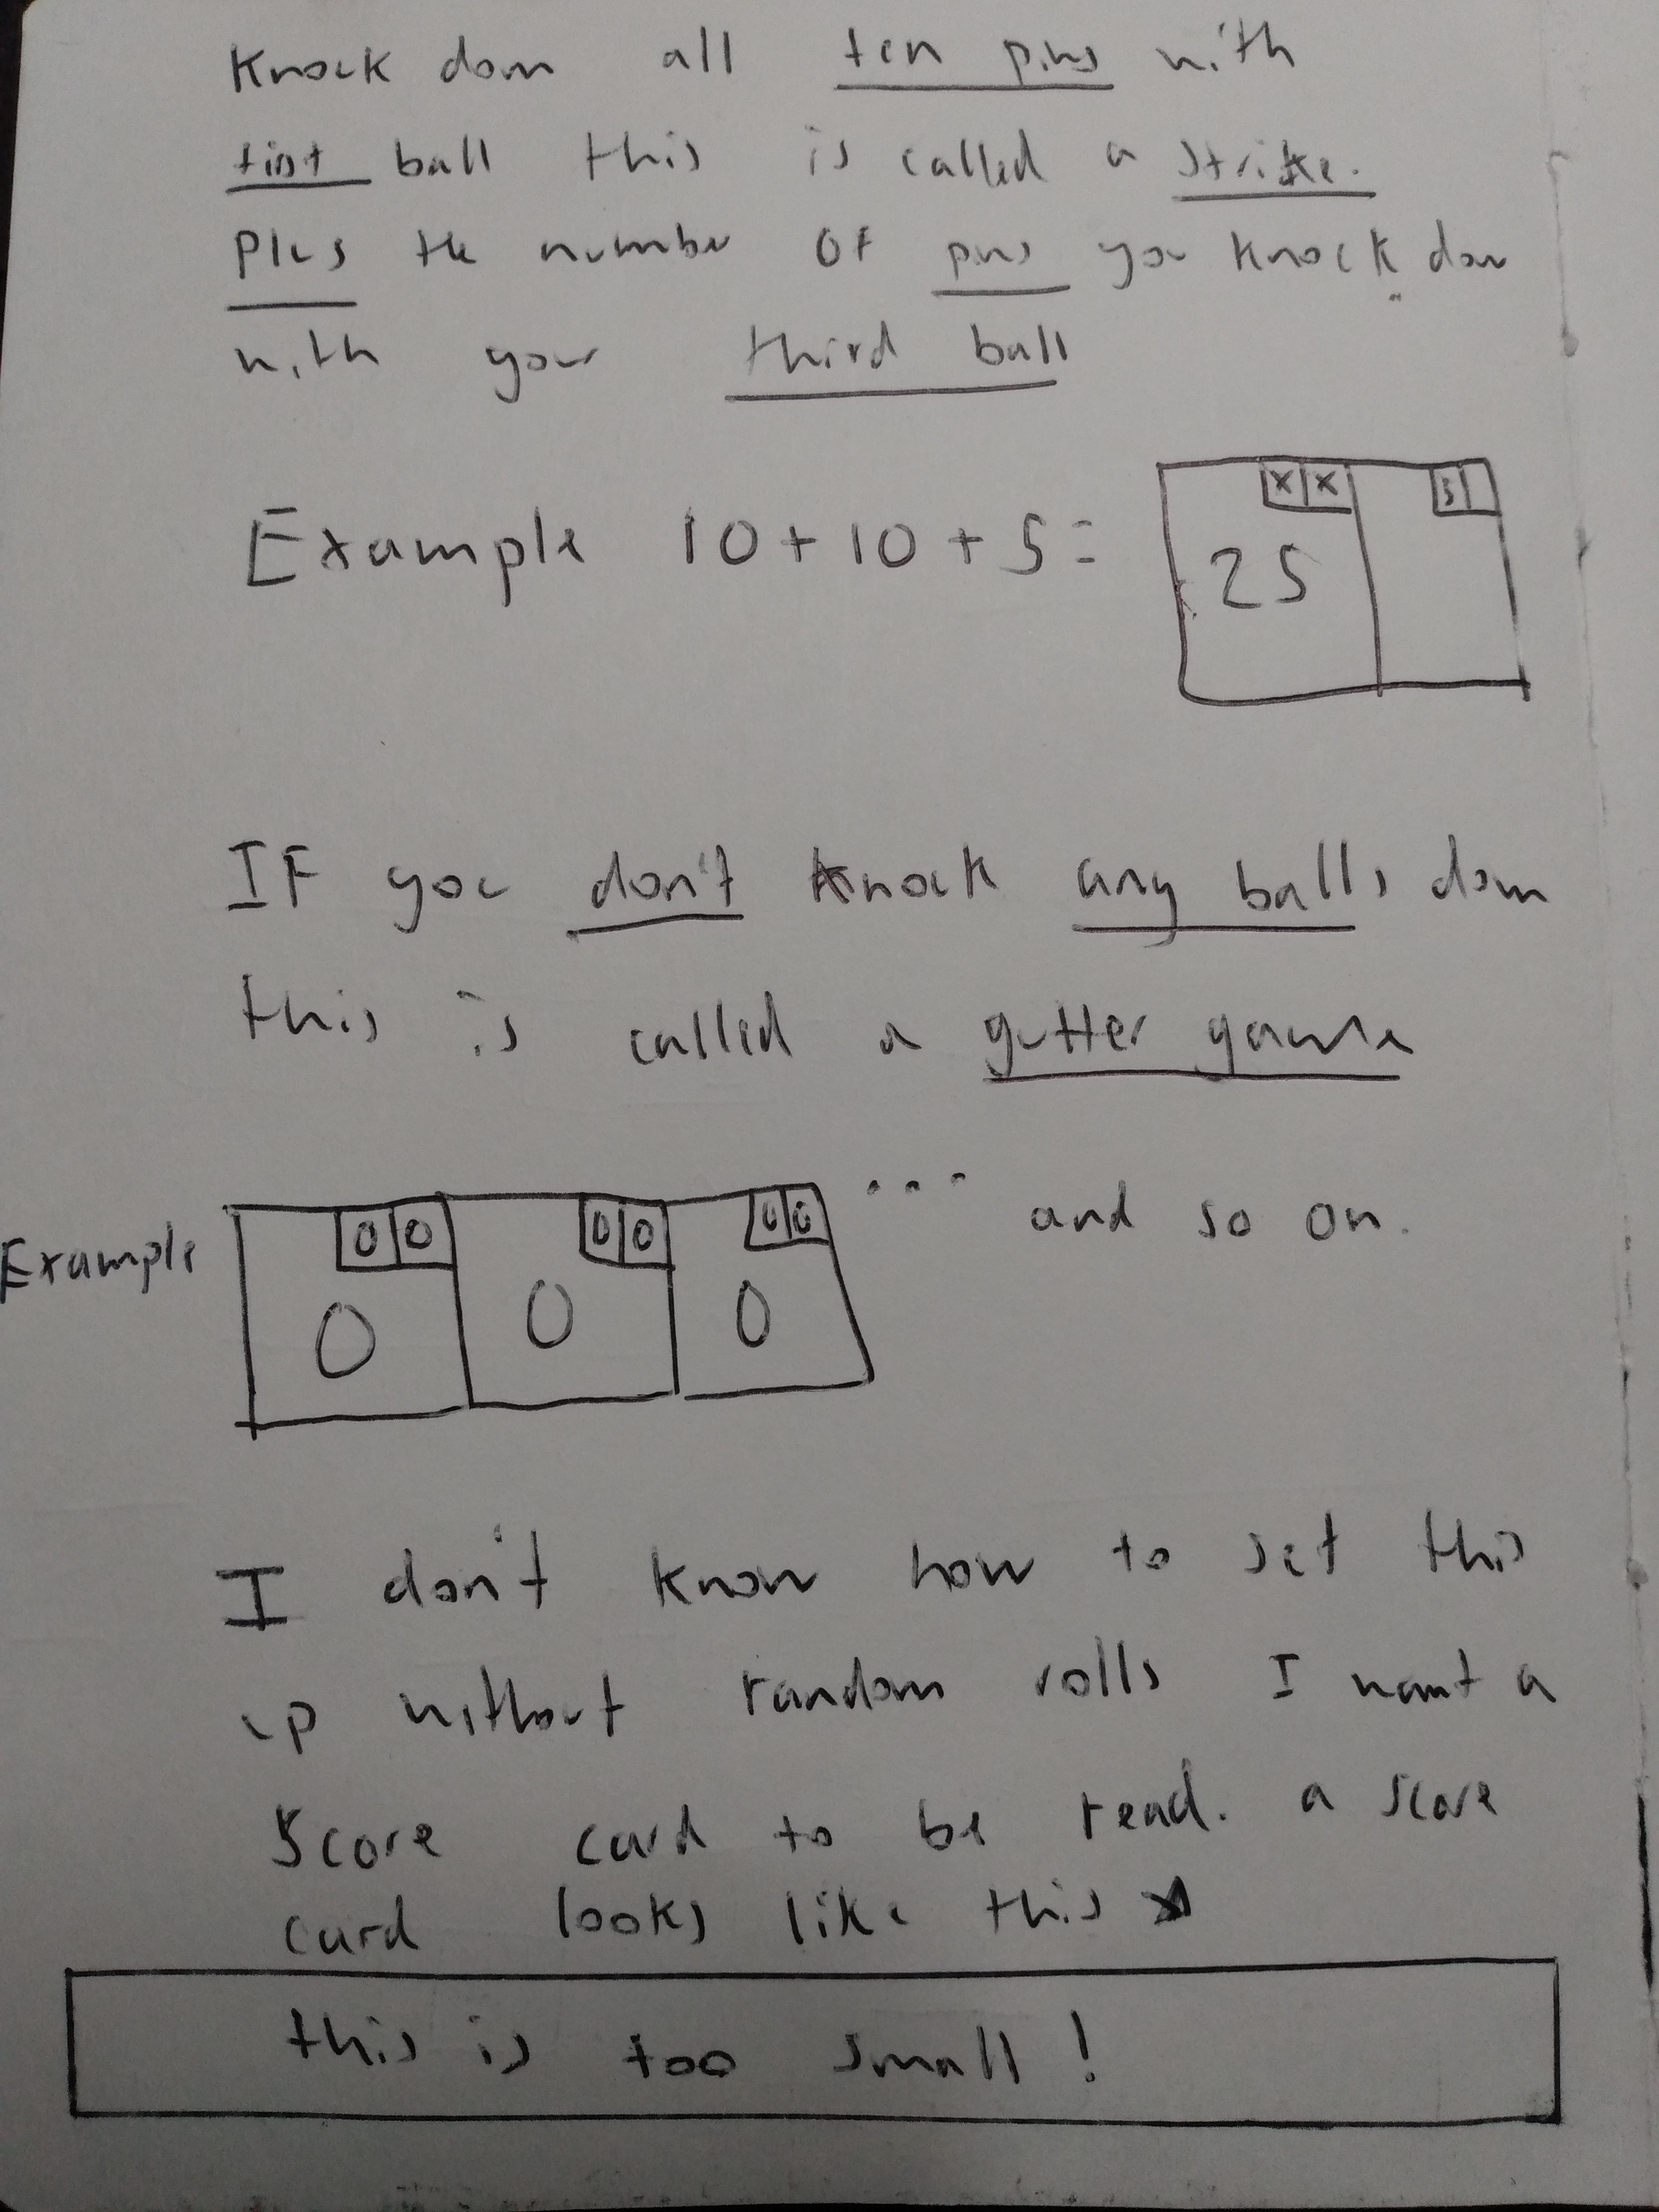 Knock down all ten pins with
first ball this is called a strike.
Plus the number of pins you knock down
with your third ball
Example 10+10+5=
X X 5
25
IF you don't knock any balls down
this is called a gutter game
... and so on.
0 0 0 0 0 0
Example
0 0 0
I don't know how to set this
up without random rolls I want a
score card to be read. a score
card looks like this
this is too small!